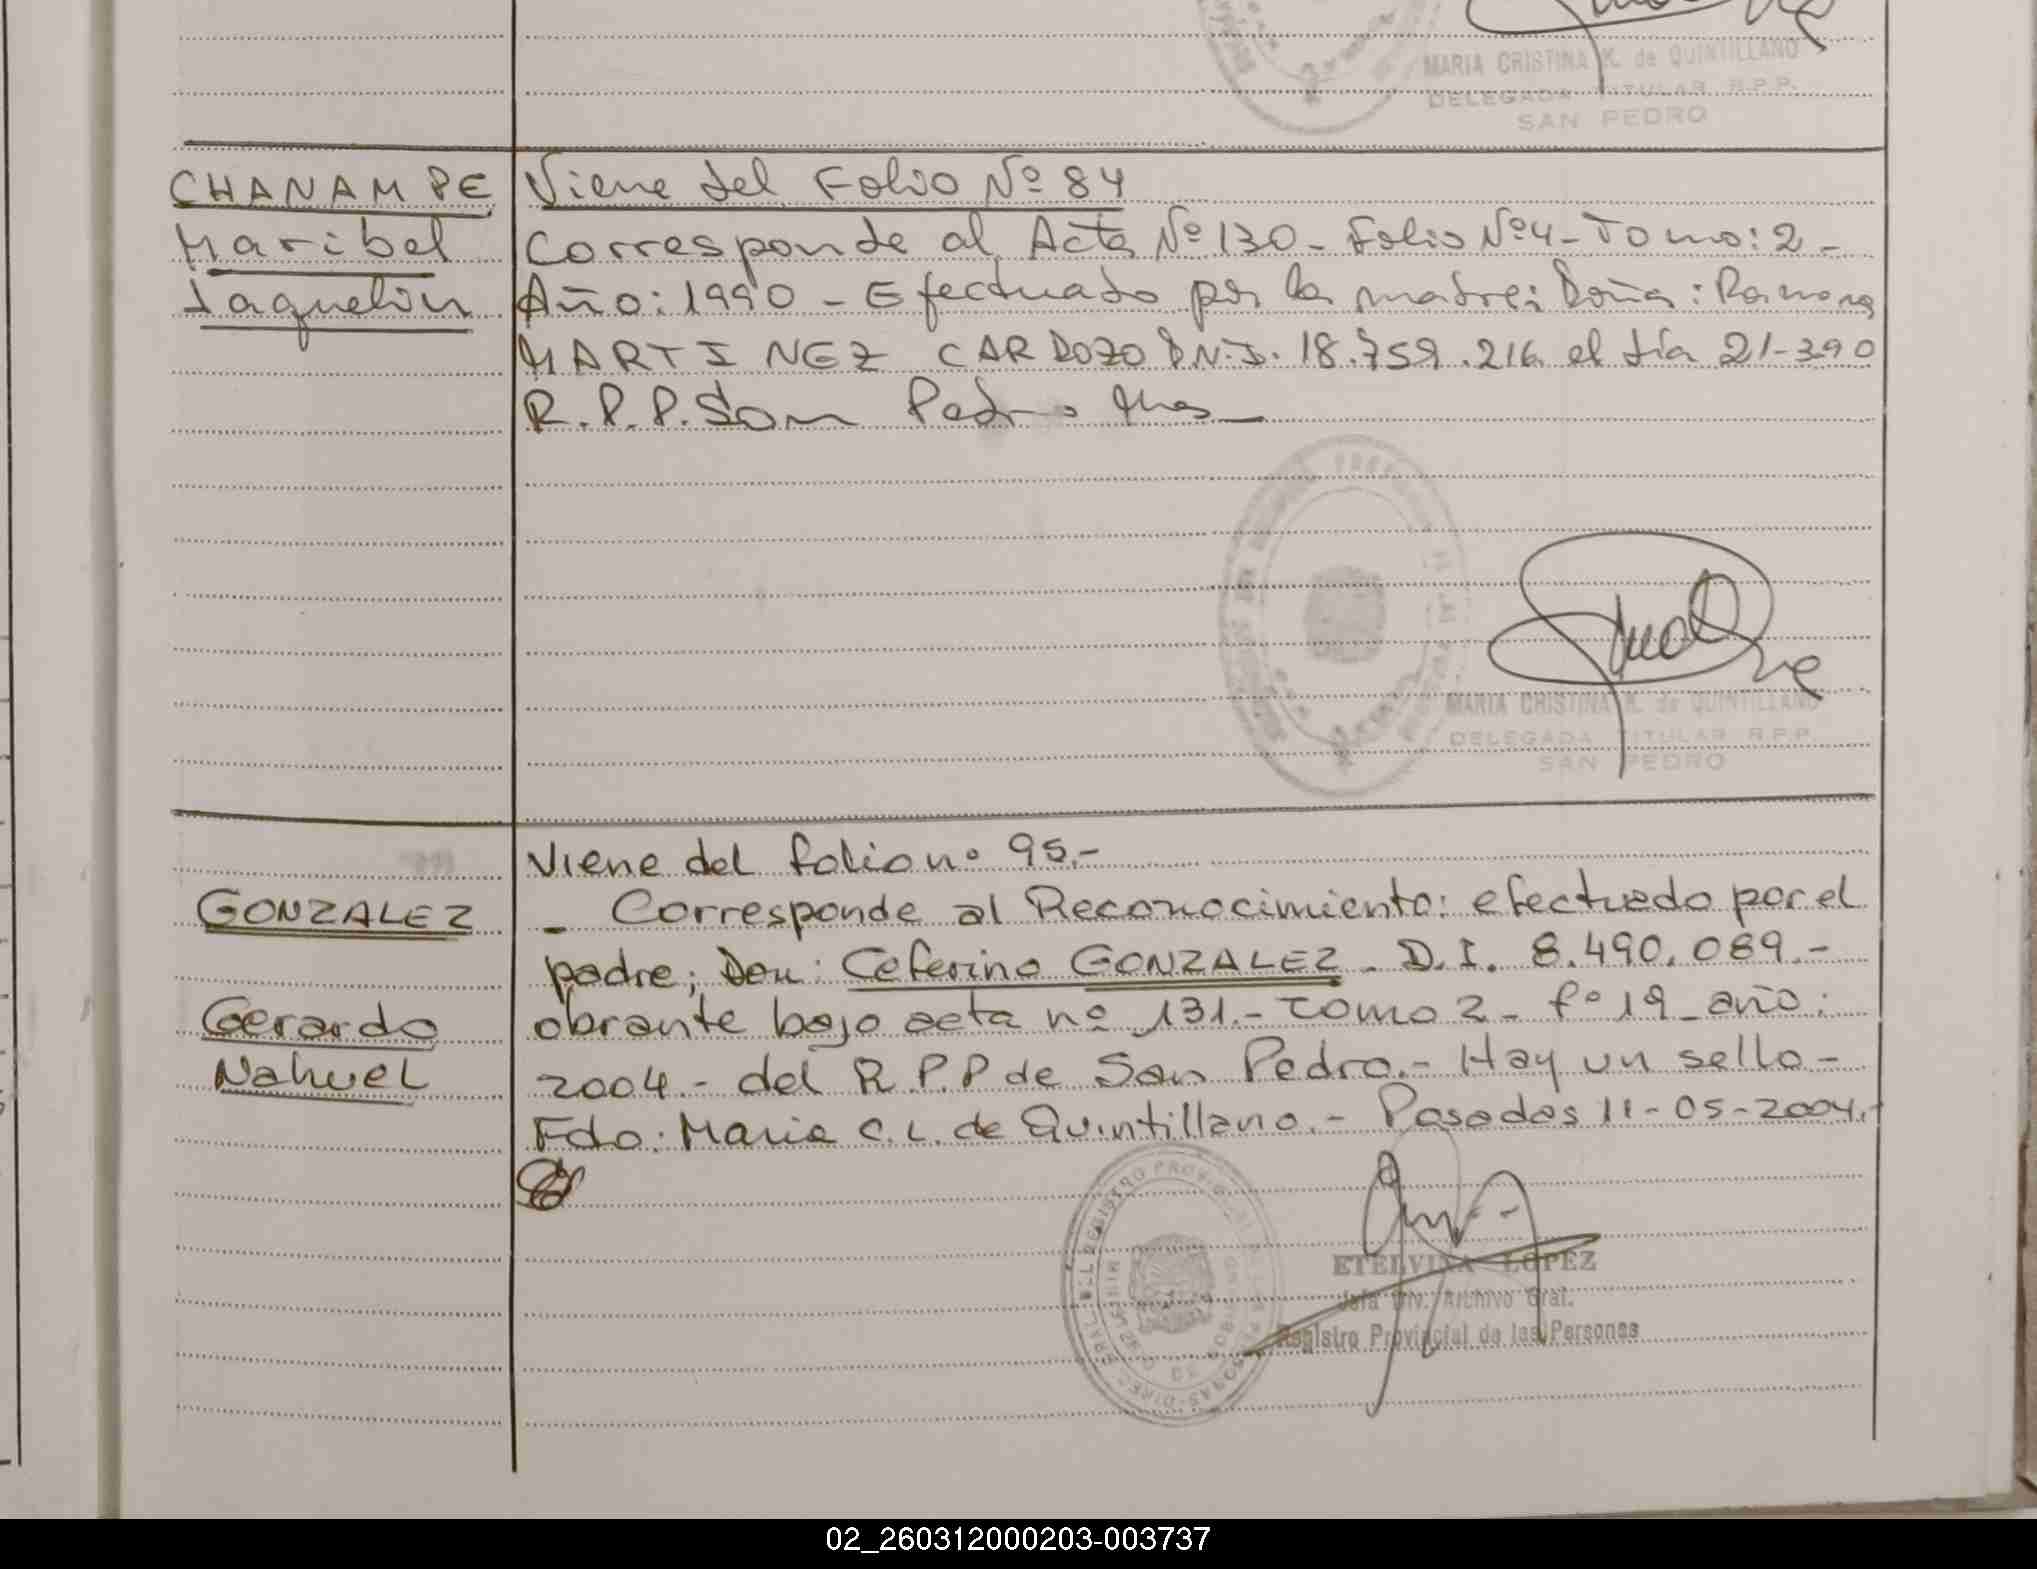 MARIA CRISTINA K. de QUINTILLANO
DELEGADA TITULAR R.P.P.
SAN PEDRO
CHANAMPE
Maribel
Jaquelin
Viene del Folio Nº 84
Corresponde al Acta Nº 130 - Folio Nº 4 - Tomo: 2 -
Año: 1990 - Efectuado por la madre: Doña: Ramona
MARTINEZ CARDOZO D.N.I. 18.759.216 el día 21-3-90
R.P.P. San Pedro Mnes
MARIA CRISTINA K. de QUINTILLANO
DELEGADA TITULAR R.P.P.
SAN PEDRO
GONZALEZ
Gerardo
Nahuel
Viene del folio nº 95.-
- Corresponde al Reconocimiento: efectuado por el
padre; Don: Ceferino GONZALEZ - D.I. 8.490.089.-
obrante bajo acta nº 131.- Tomo 2 - fº 19 - año:
2004.- del R.P.P de San Pedro.- Hay un sello -
Fdo: Maria C. L. de Quintillano.- Posadas 11-05-2004.-
ETELVINA LOPEZ
Jefa Div. Archivo Gral.
Registro Provincial de las Personas
02_260312000203-003737